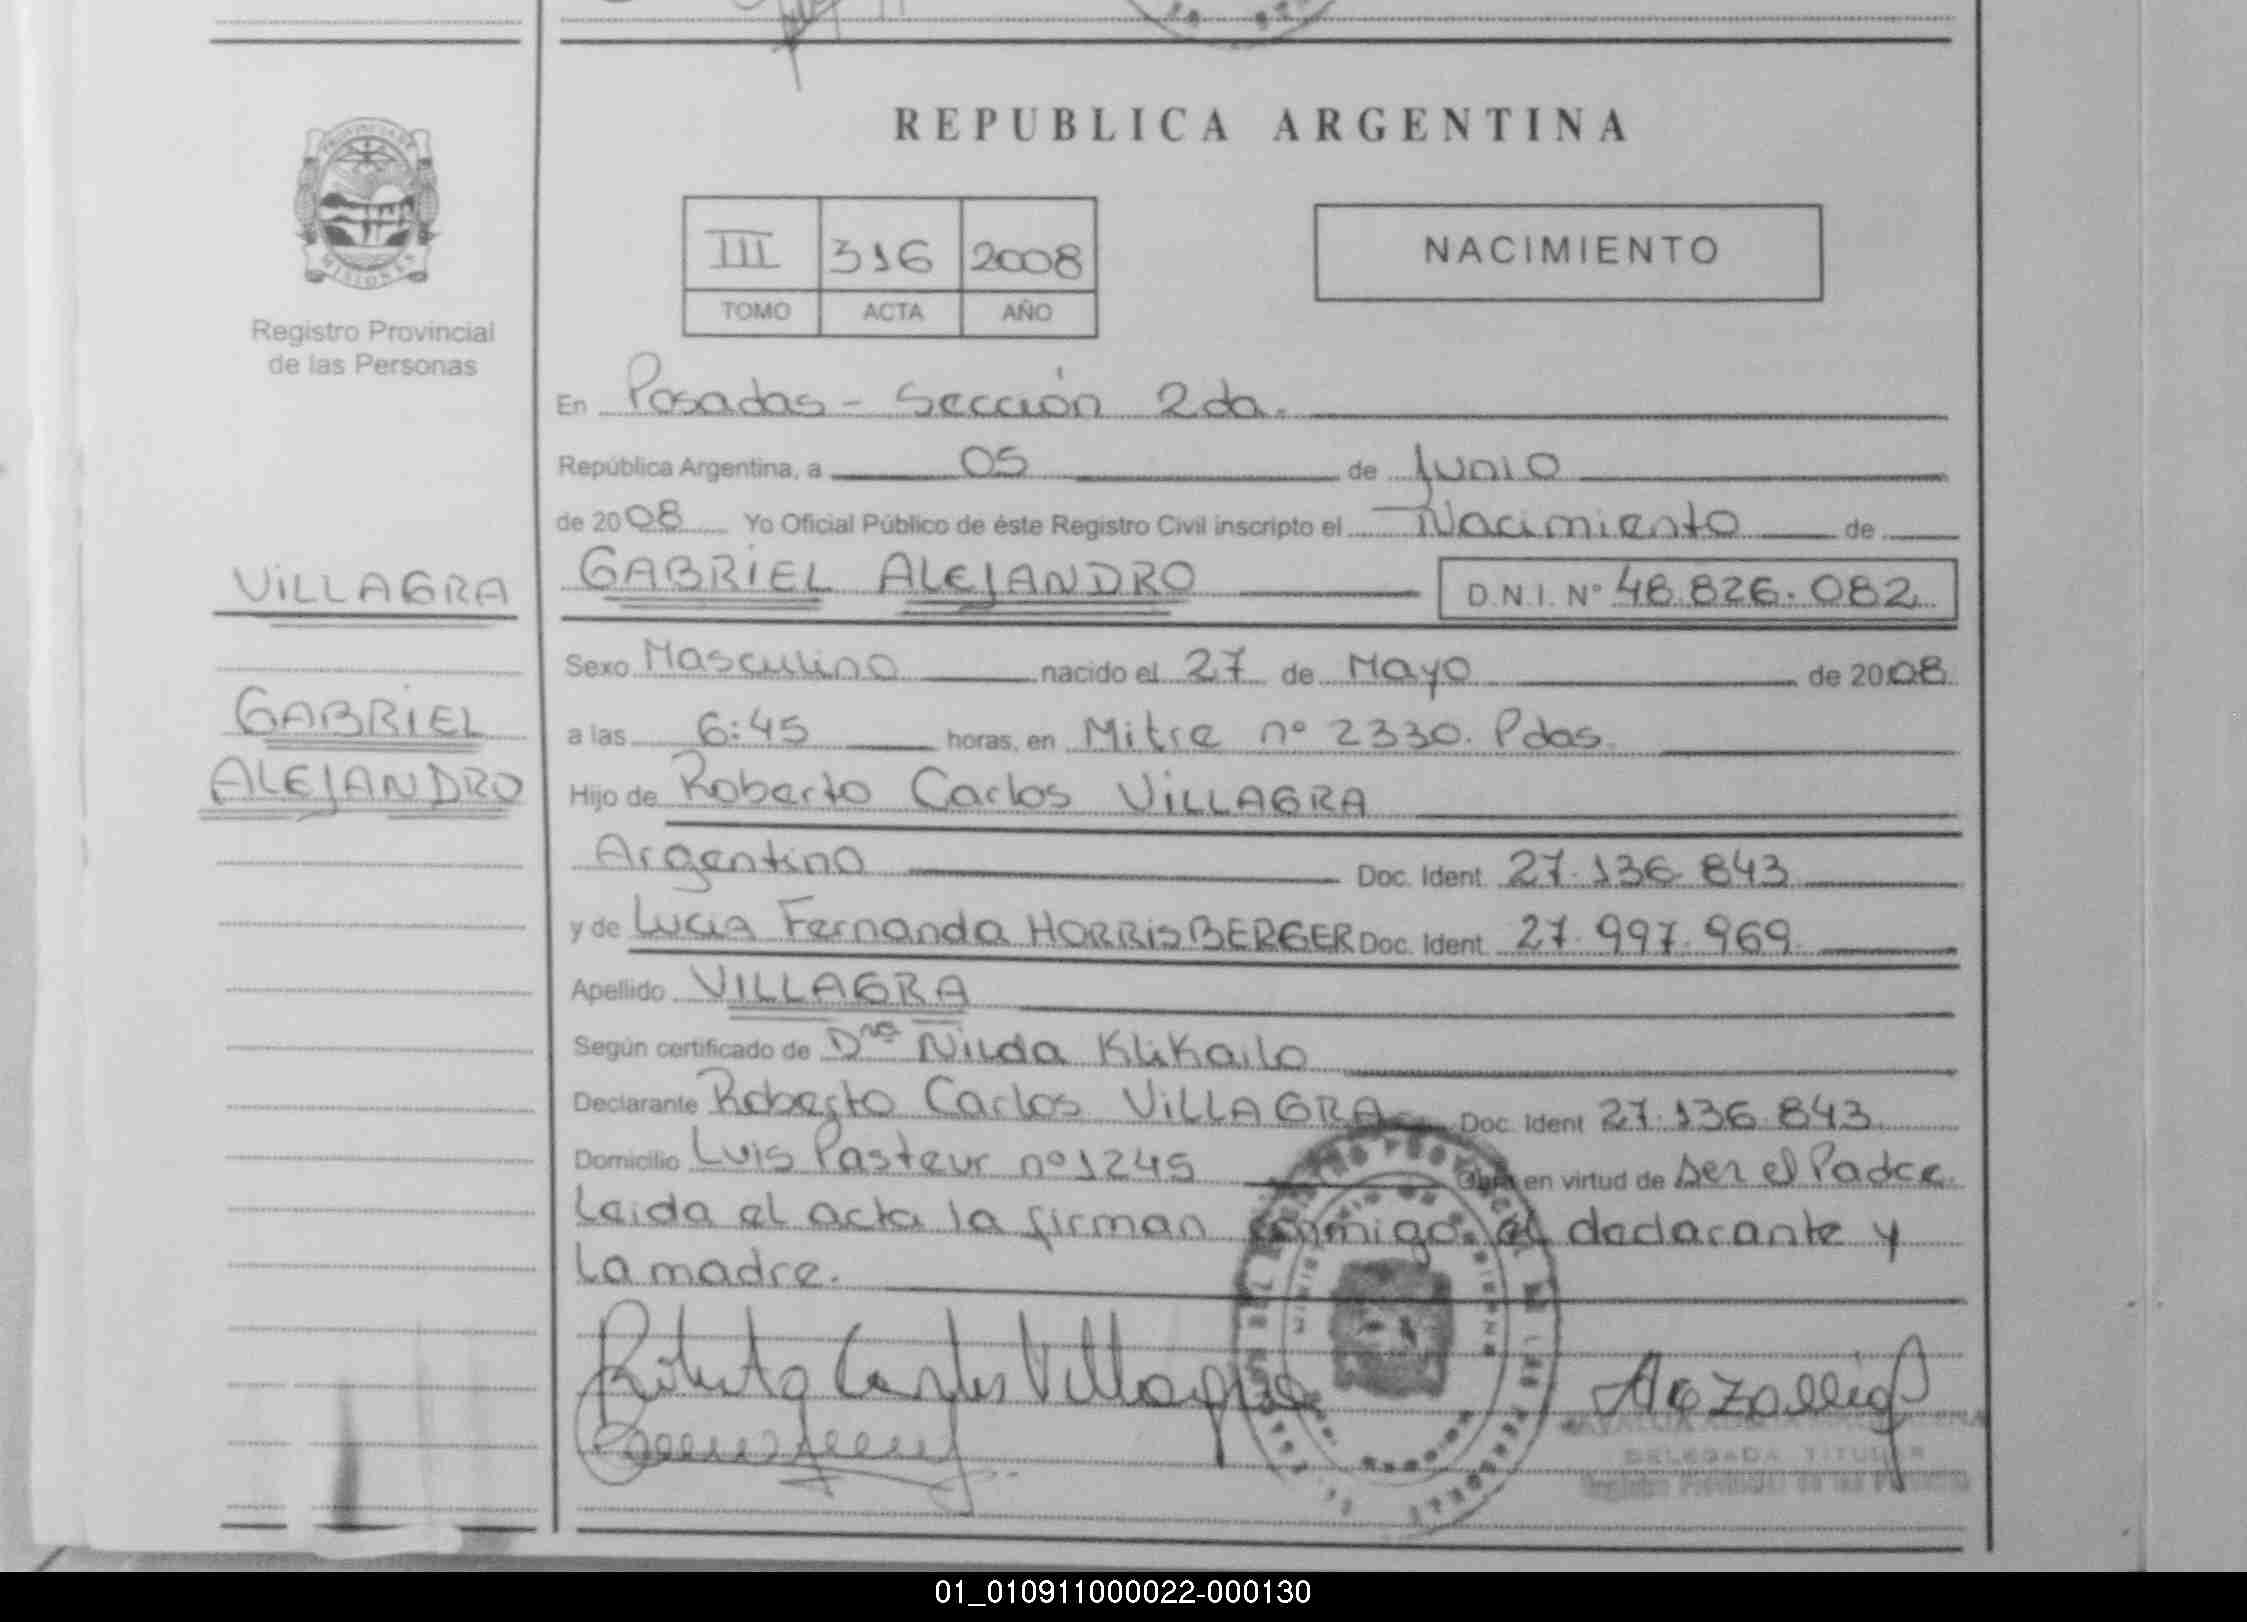 PROVINCIA DE
MISIONES
Registro Provincial
de las Personas
VILLAGRA
GABRIEL
ALEJANDRO
REPUBLICA ARGENTINA
III 316 2008
TOMO ACTA AÑO
NACIMIENTO
En Posadas - Sección 2da.
República Argentina, a 05 de Junio
de 2008 Yo Oficial Público de éste Registro Civil inscripto el Nacimiento de
GABRIEL ALEJANDRO D.N.I. Nº 48.826.082
Sexo Masculino nacido el 27 de Mayo de 2008
a las 6:45 horas, en Mitre nº 2330. Pdas.
Hijo de Roberto Carlos VILLAGRA
Argentino Doc. Ident. 27.136.843
y de Lucia Fernanda HORRISBERGER Doc. Ident. 27.997.969
Apellido VILLAGRA
Según certificado de Dra Nilda Klikailo
Declarante Roberto Carlos VILLAGRA Doc. Ident 27.136.843
Domicilio Luis Pasteur nº 1245 Obra en virtud de ser el Padre.
Leida el acta la firman conmigo. el declarante y
la madre.
Roberto Carlos Villagra
DELEGADA TITULAR
Registro Provincial de las Personas
01_010911000022-000130